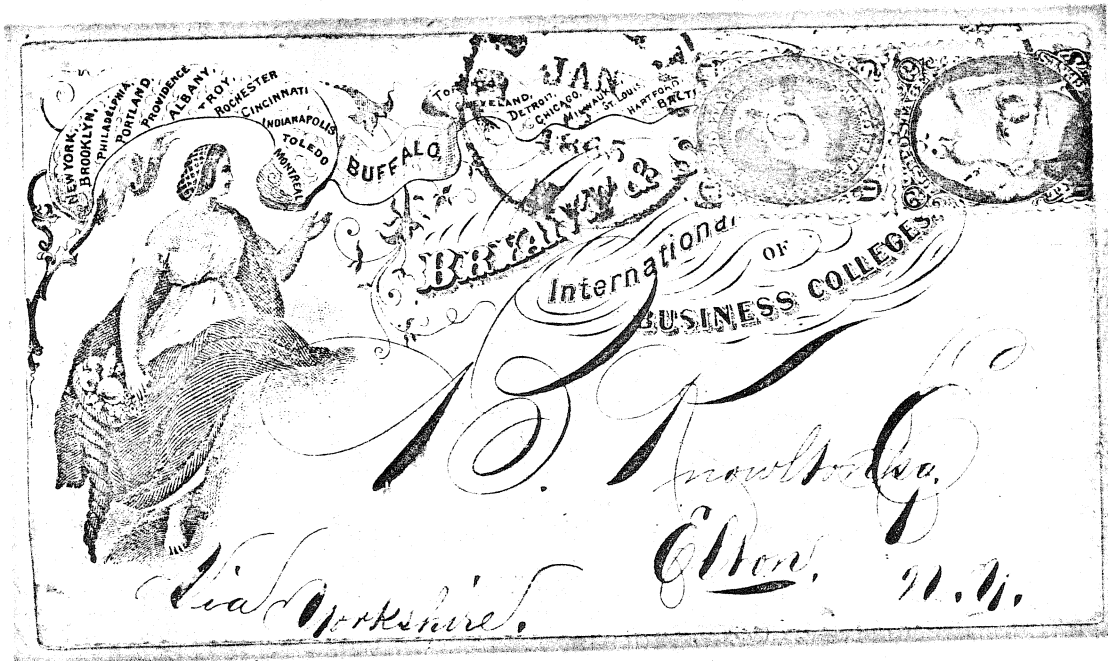 NEW YORK,
BROOKLYN,
PHILADELPHIA
PORTLAND,
PROVIDENCE
ALBANY,
TROY,
ROCHESTER
CINCINNATI
INDIANAPOLIS
TOLEDO
MONTREAL
BUFFALO,
CLEVELAND,
DETROIT,
CHICAGO,
MILWAUK
ST LOUIS
HARTFORD
BALTI
JAN
BRYANT
International
OF
BUSINESS COLLEGES
B. Knowlton Esq.
Elton,
N. Y.
Via Yorkshire.